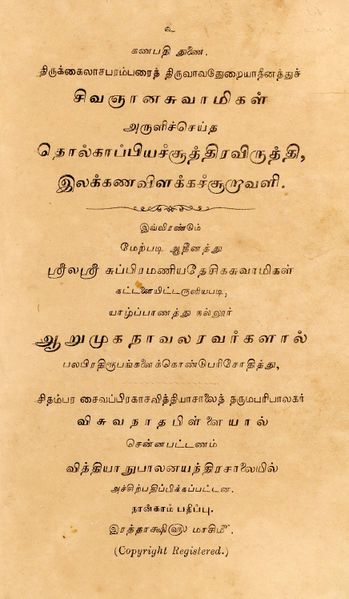 உ
கணபதி துணை.
திருக்கைலாசபரம்பரைத் திருவாவதுறையாதீனத்துச்
சிவஞானசுவாமிகள்
அருளிச்செய்த
தொல்காப்பியச்சூத்திரவிருத்தி,
இலக்கணவிளக்கச்சூறாவளி.
இவ்விரண்டும்
மேற்படி ஆதீனத்து
ஸ்ரீலஸ்ரீ சுப்பிரமணியதேசிகசுவாமிகள்
கட்டளையிட்டருளியபடி,
யாழ்ப்பாணத்து நல்லூர்
ஆறுமுகநாவலரவர்களால்
பலபிரதிரூபங்களைக்கொண்டுபரிசோதித்து,
சிதம்பர சைவப்பிரகாசவித்தியாசாலைத் தருமபரிபாலகர்
விசுவநாதபிள்ளையால்
சென்னபட்டணம்
வித்தியாநுபாலனயந்திரசாலையில்
அச்சிற்பதிப்பிக்கப்பட்டன.
நான்காம் பதிப்பு.
இரத்தாக்ஷி௵ மாசி௴
(Copyright Registered.)